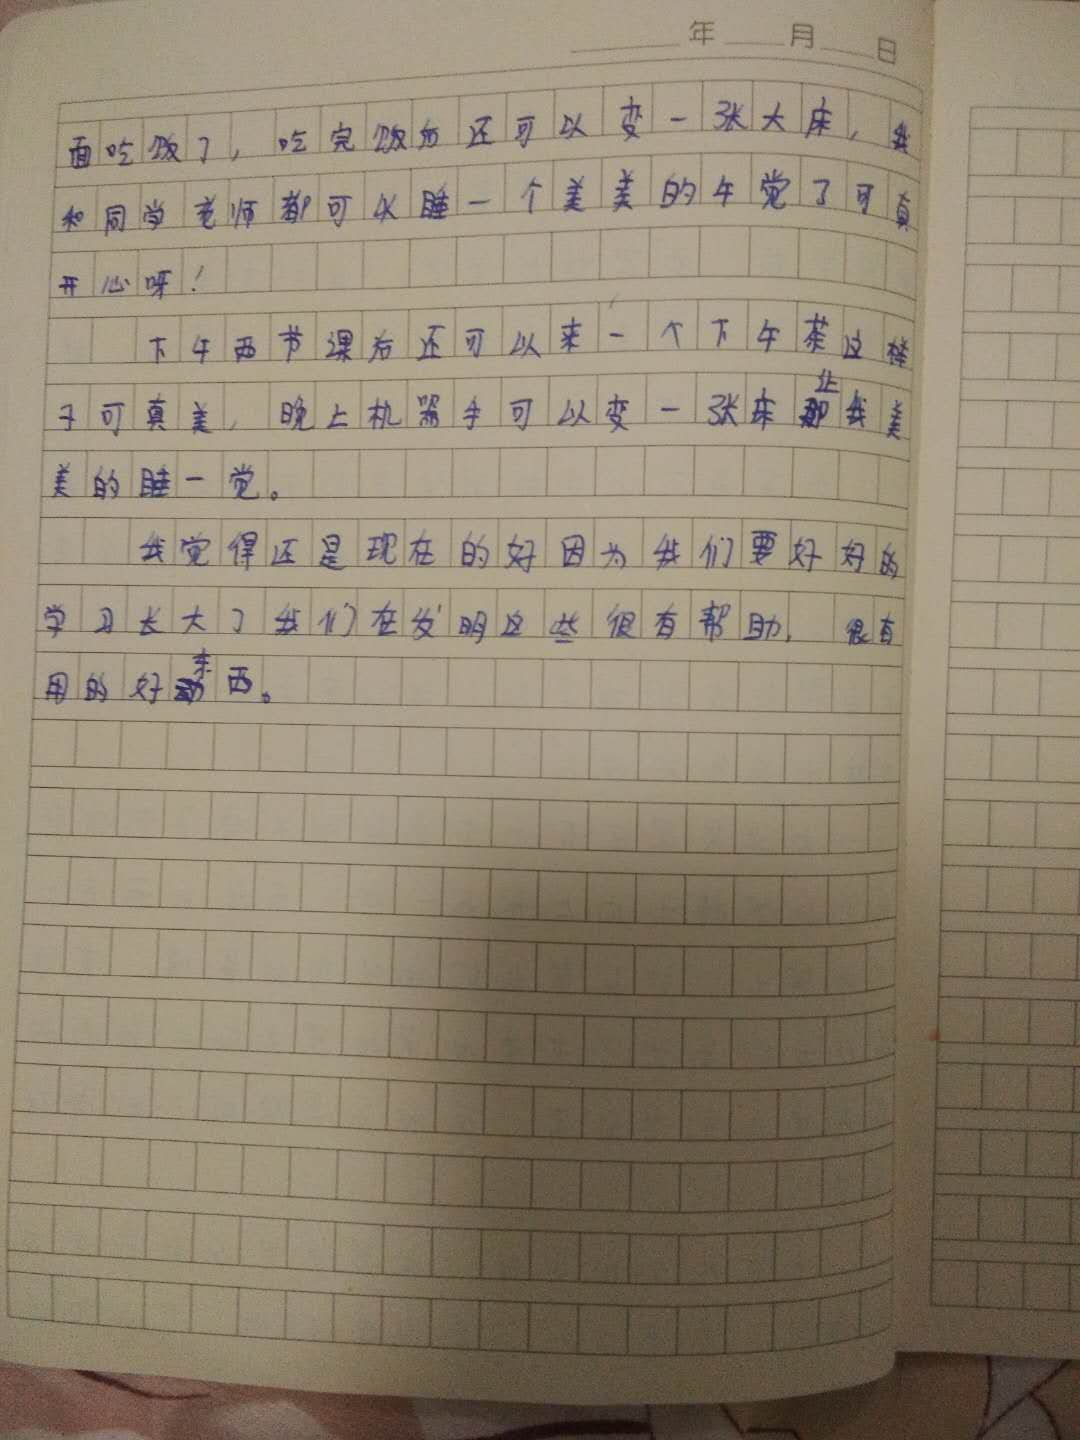 年 月 日
面吃饭了，吃完饭后还可以变一张大床，我
和同学老师都可以睡一个美美的午觉了可真
开心呀！
下午两节课后还可以来一个下午茶这样
子可真美，晚上机器手可以变一张床让我美
美的睡一觉。
我觉得还是现在的好因为我们要好好的
学习长大了我们在发明这些很有帮助，很有
用的好东西。